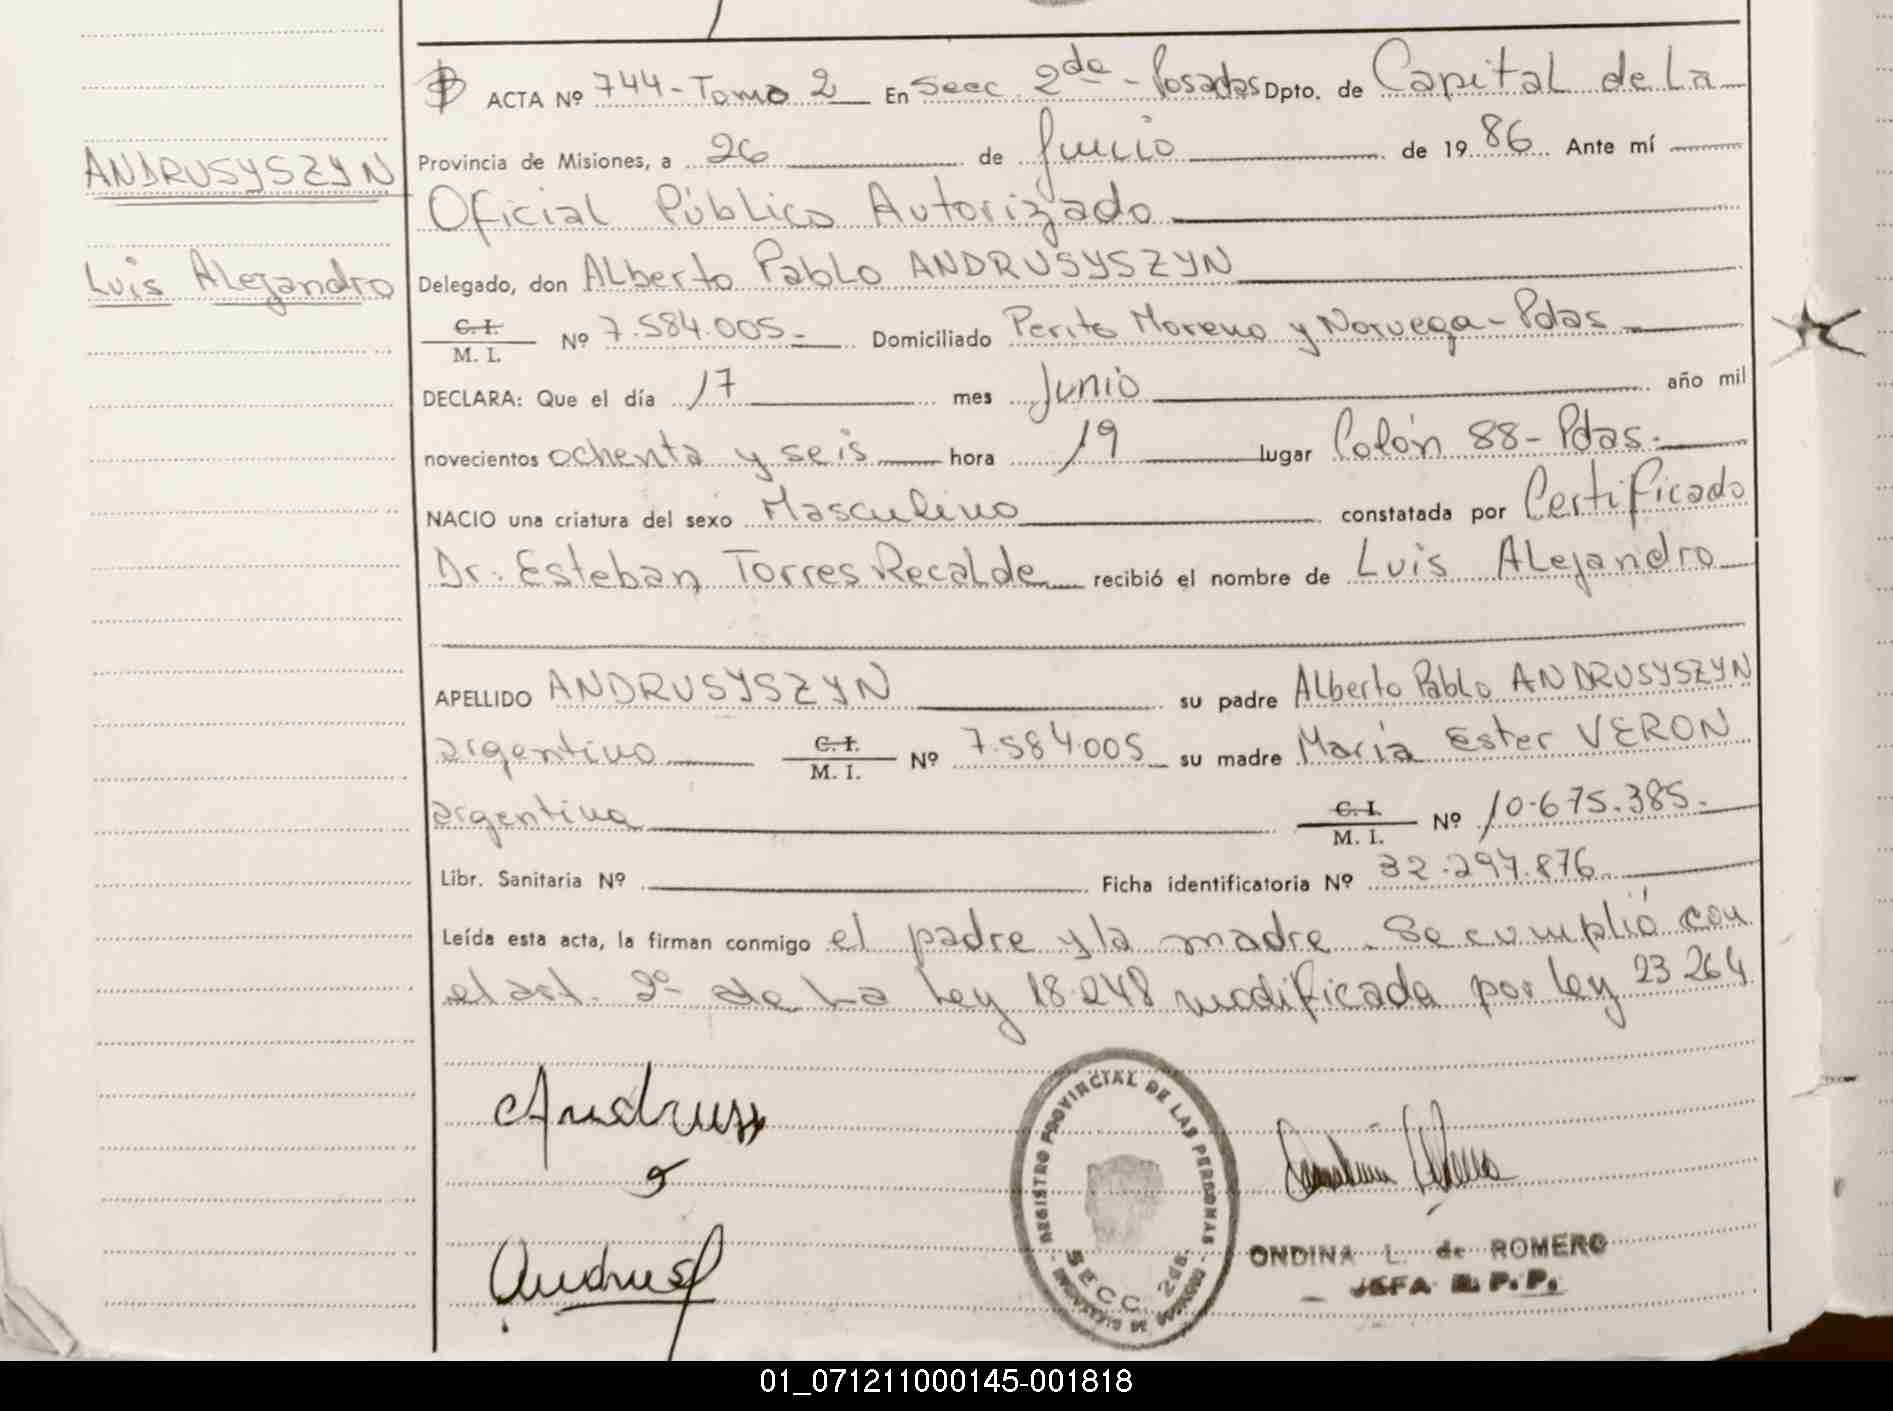 ACTA Nº 744-Tomo 2 En Secc 2da - Posadas Dpto. de Capital de La
ANDRUSYSZYN
Provincia de Misiones, a 26 de Junio de 1986 Ante mí
Oficial Público Autorizado
Luis Alejandro
Delegado, don Alberto Pablo ANDRUSYSZYN
C. I.
M. I. Nº 7.584.005.- Domiciliado Perito Moreno y Noruega - Pdas
DECLARA: Que el día 17 mes Junio año mil
novecientos ochenta y seis hora 19 lugar Colón 88 - Pdas.
NACIO una criatura del sexo Masculino constatada por Certificado
Dr. Esteban Torres Recalde recibió el nombre de Luis Alejandro
APELLIDO ANDRUSYSZYN su padre Alberto Pablo ANDRUSYSZYN
argentino C. I. M. I. Nº 7.584.005 su madre María Ester VERON
argentina C. I. M. I. Nº 10.675.385.
Libr. Sanitaria Nº Ficha identificatoria Nº 32.297.876
Leída esta acta, la firman conmigo el padre y la madre. Se cumplió con
el art. 2º de La Ley 18.248 modificada por ley 23 264
REGISTRO PROVINCIAL DE LAS PERSONAS
SECC. 2da.
ONDINA L. de ROMERO
JEFA R. P. P.
01_071211000145-001818